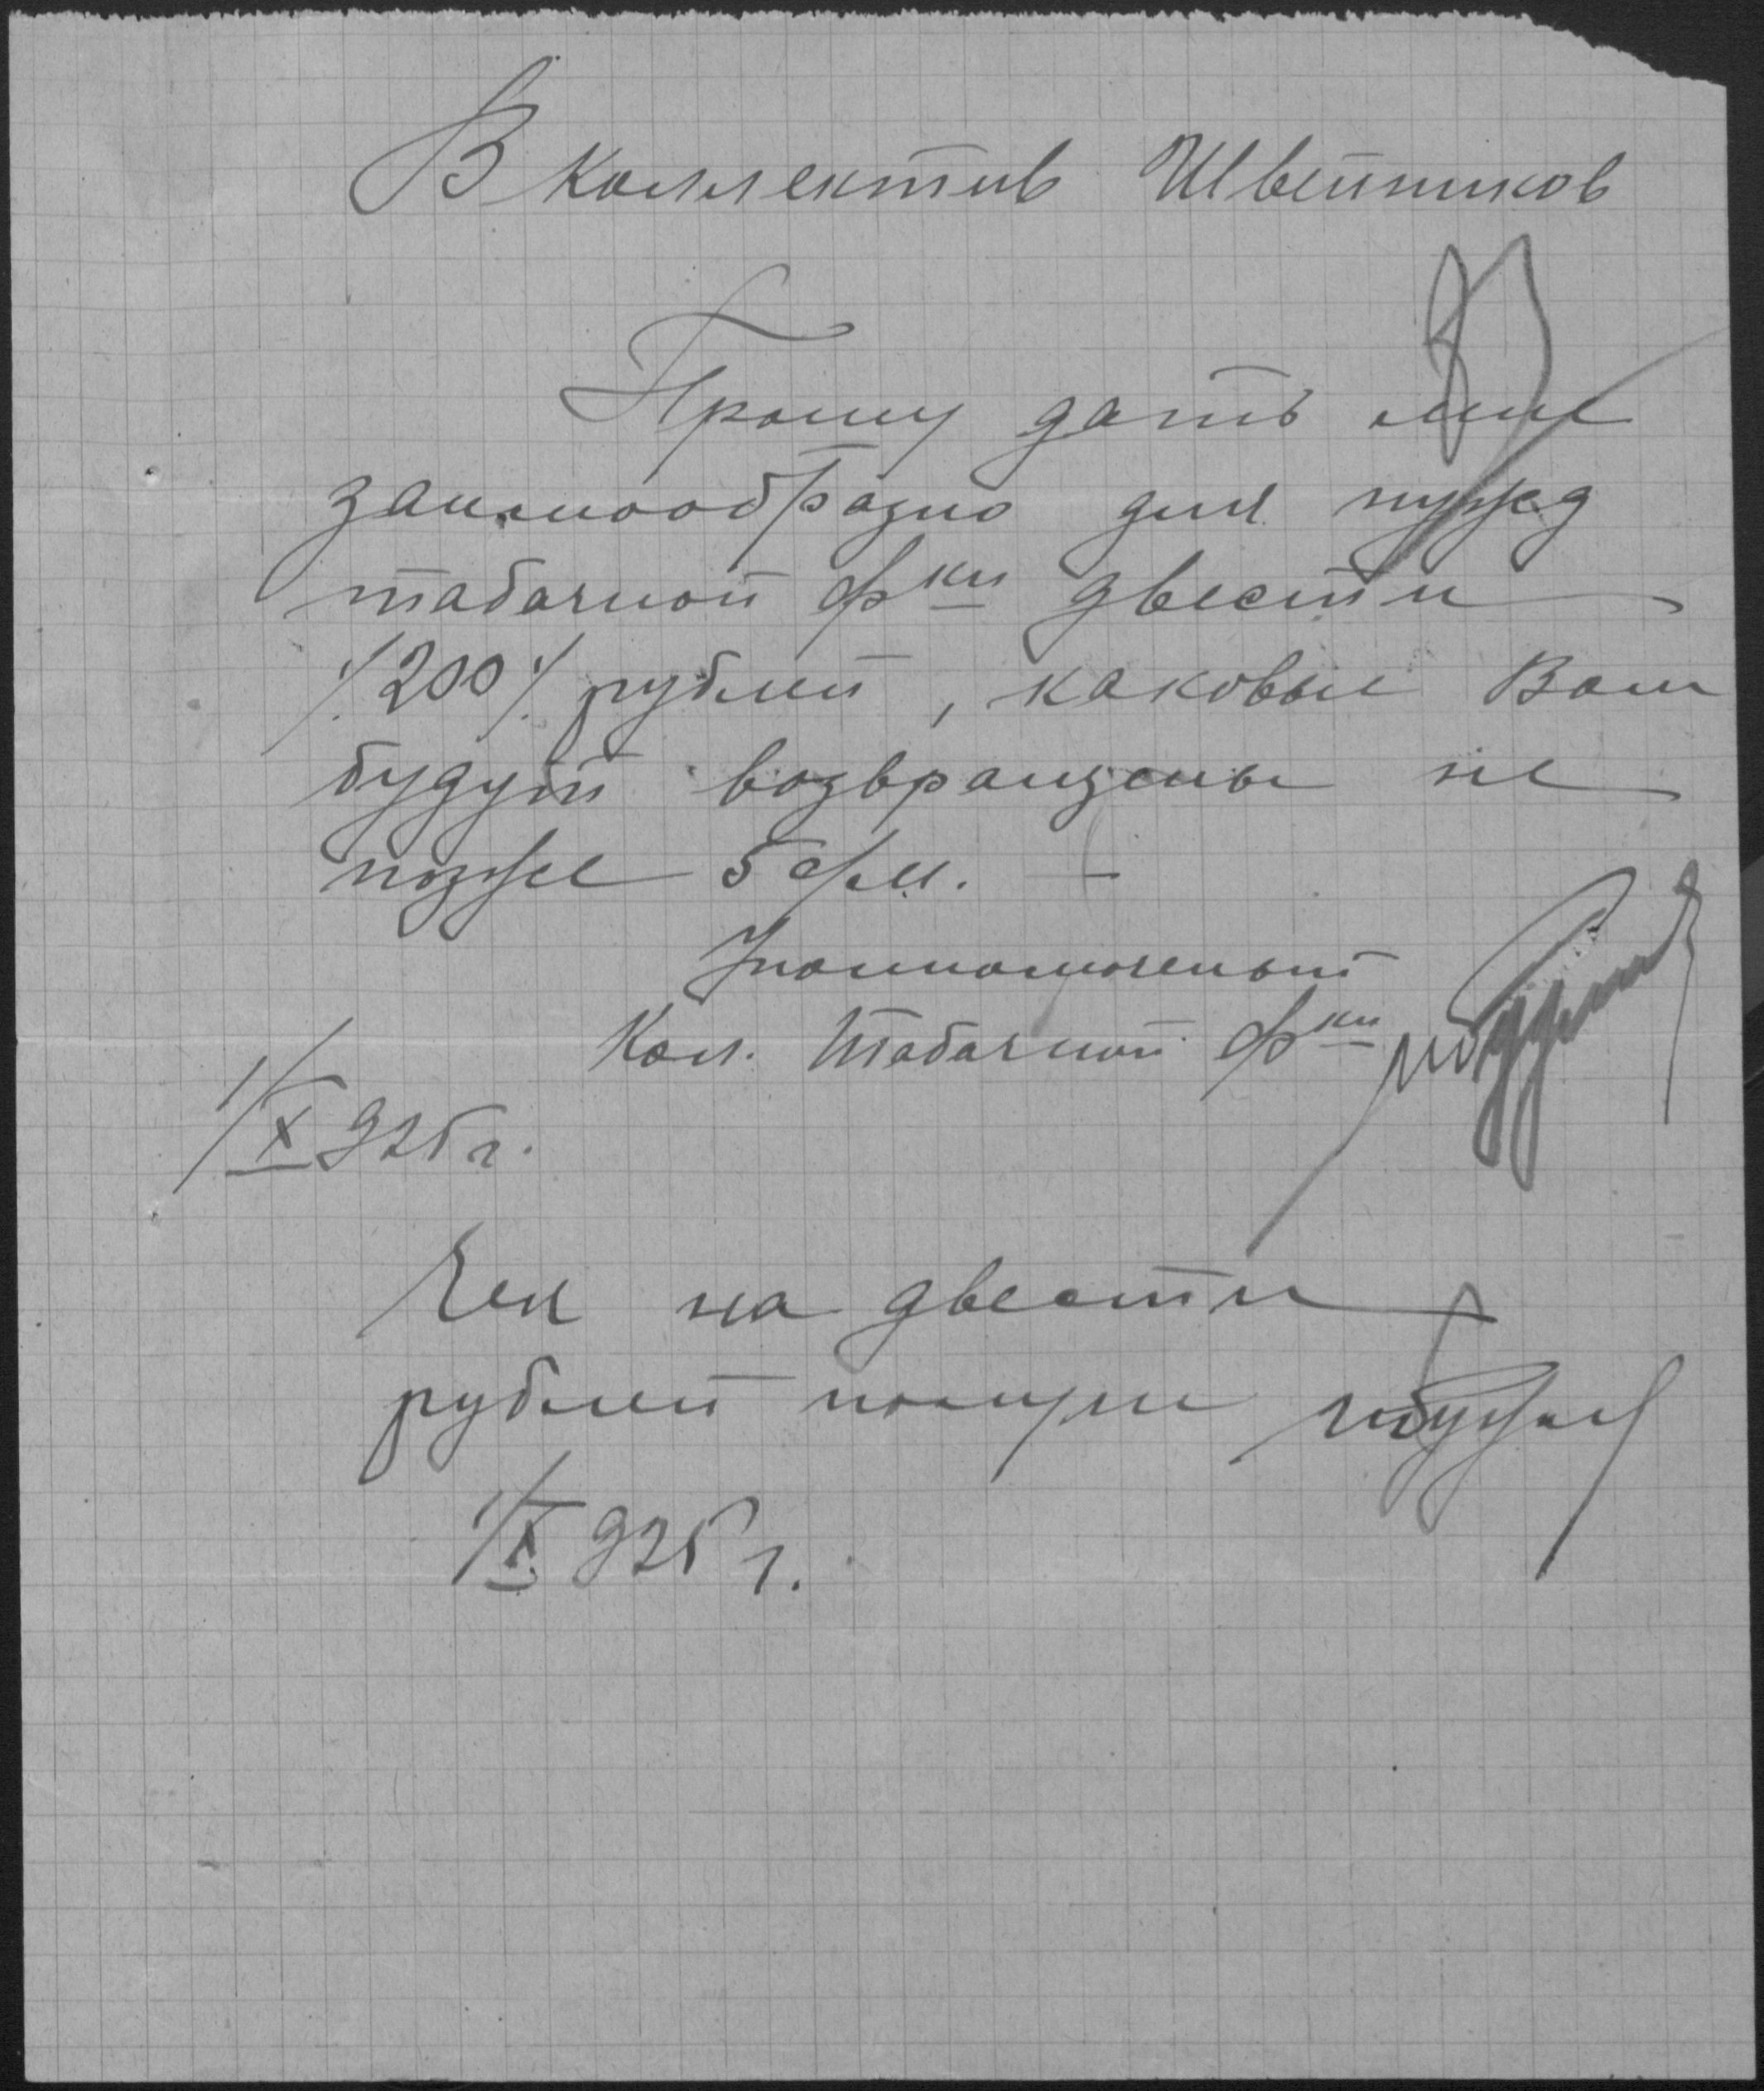 В Коллектив Швейников
Прошу дать мне
заимообразно для нужд
табачной ф-ки двести
/200/ рублей, каковые Вам
будут возвращены не
позже 5 с/м.
Уполномоченный
Кол. Табачной ф-ки
1/X 925 г.
Чек на двести
рублей получил
1/X 925 г.